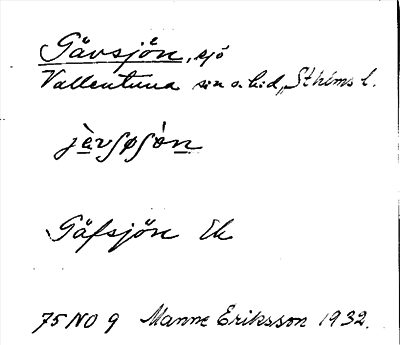 Gävsjön, sjö
Vallentuna sn o. hd, Sthlms l.
jèvʃøʃòn
Gäfsjön Ek
75 NO 9 Manne Eriksson 1932.